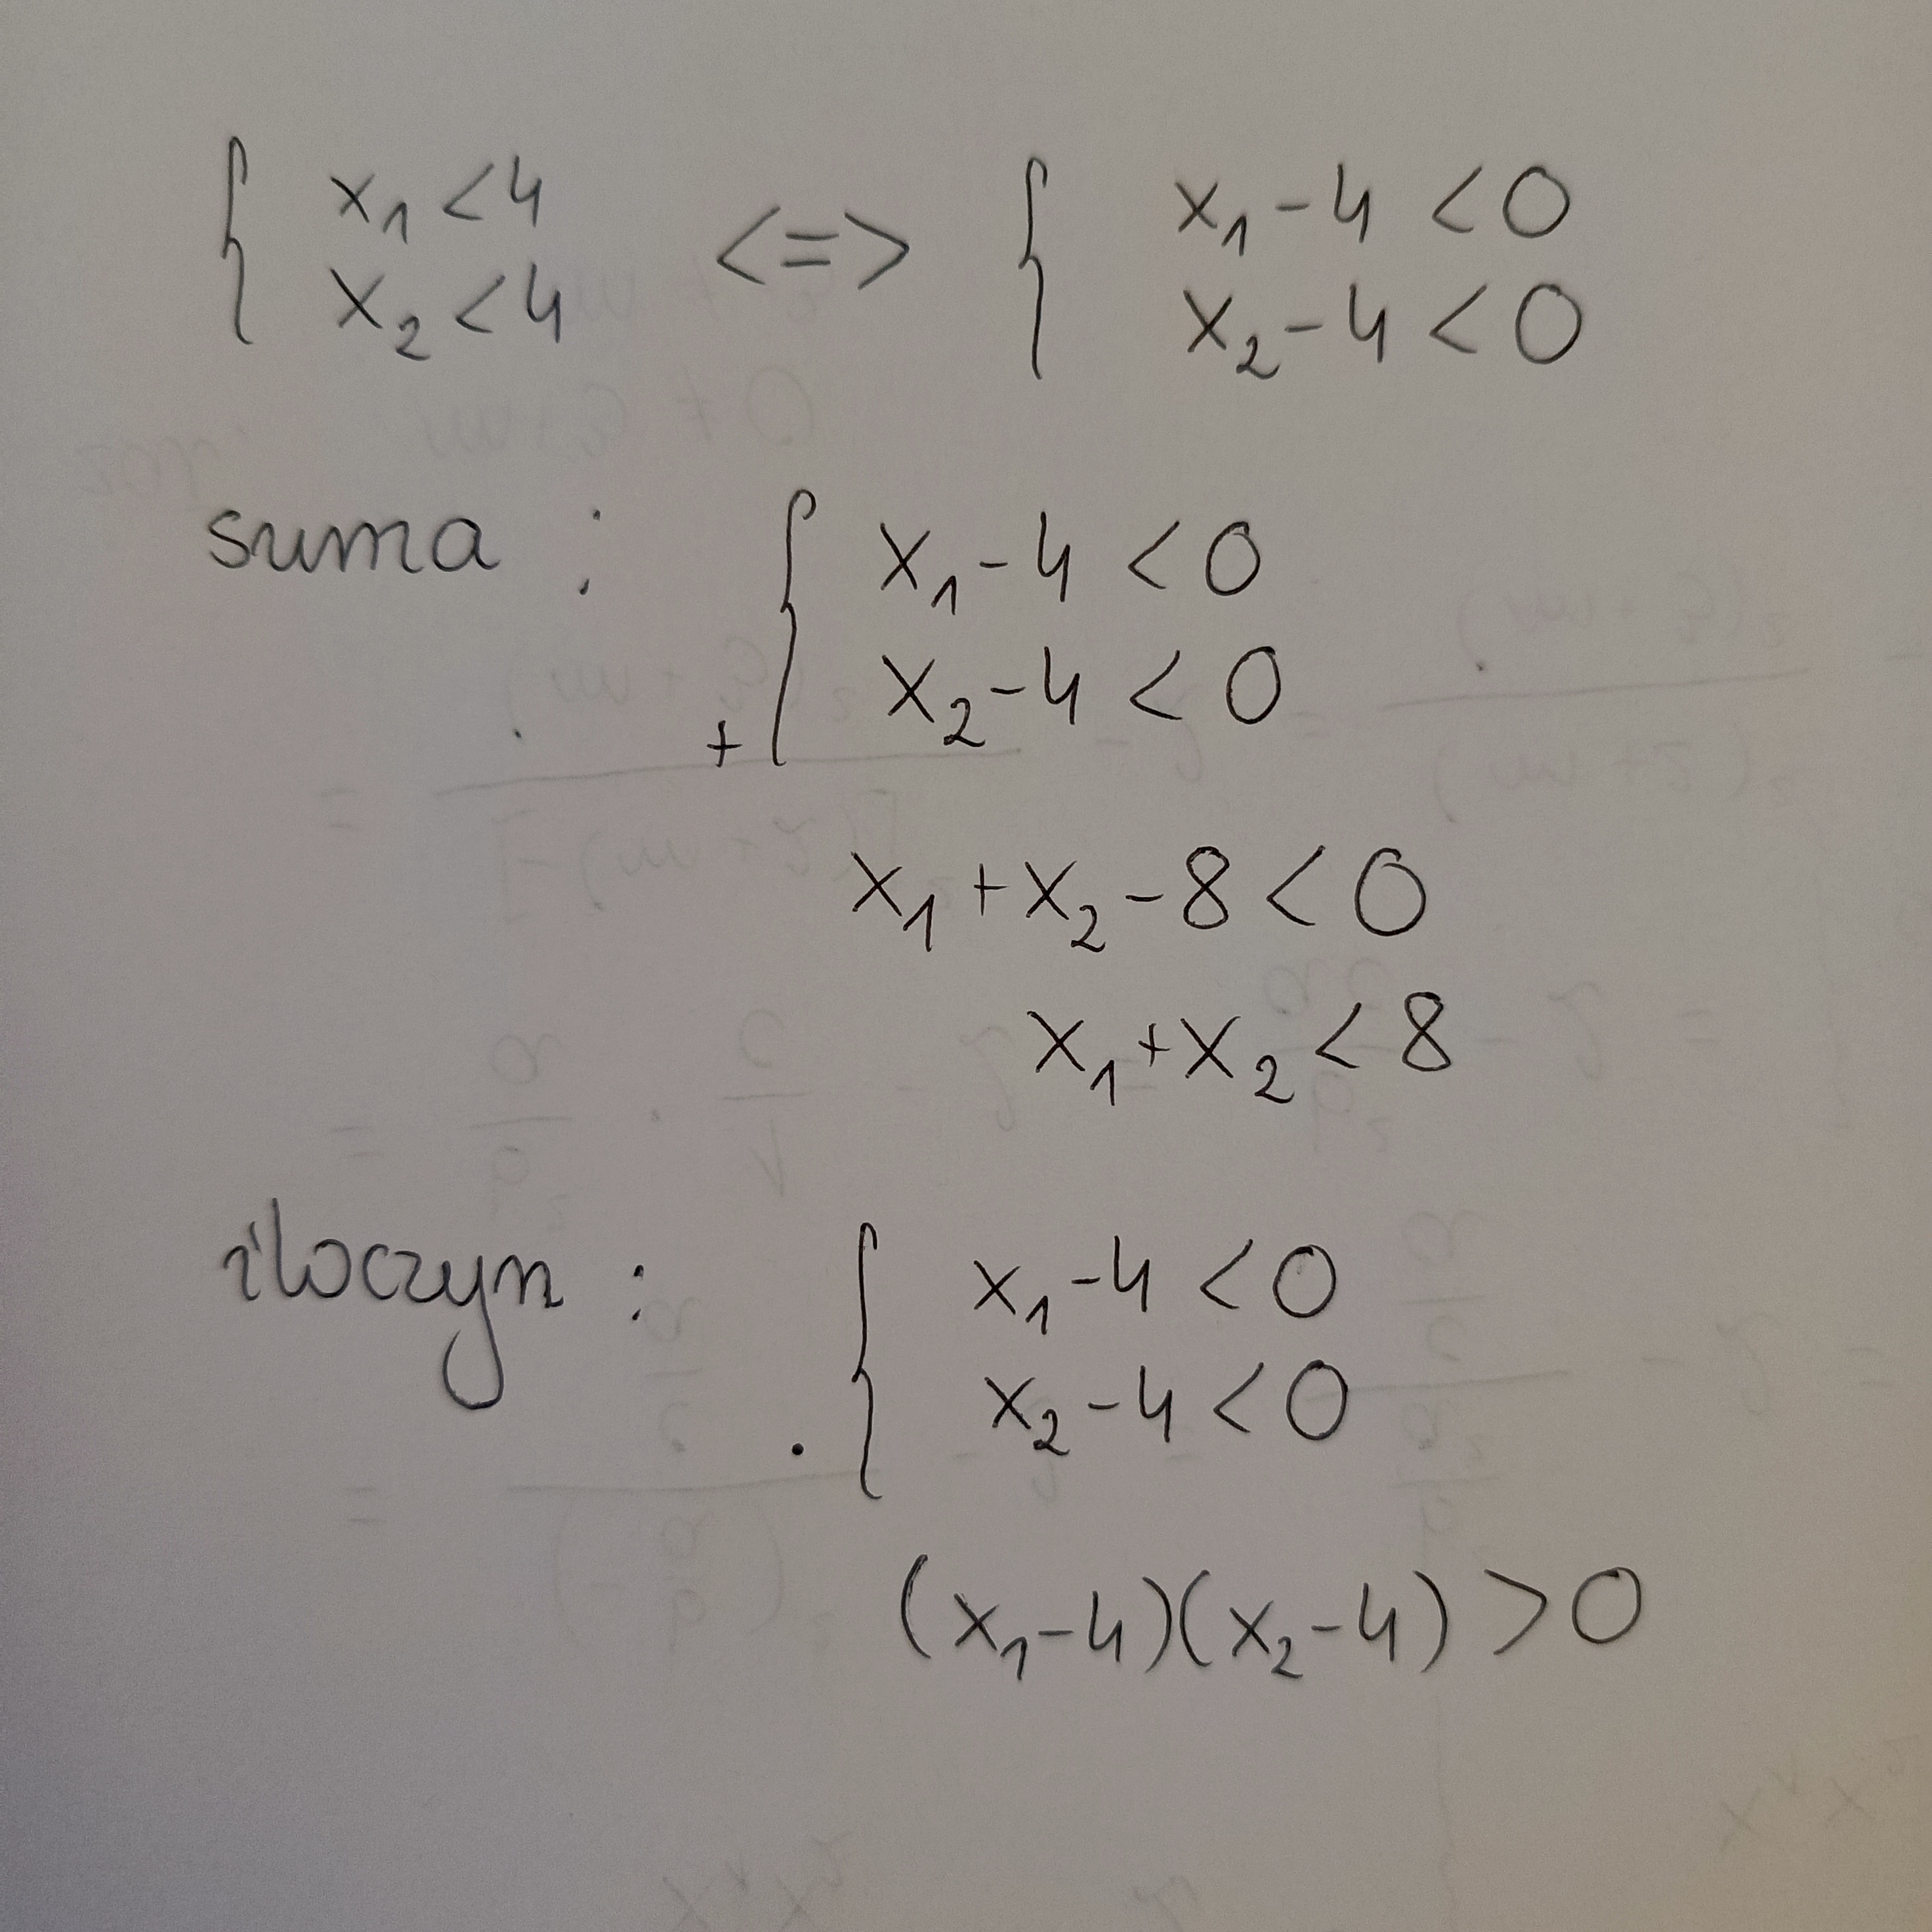 { x₁ < 4 <=> { x₁ - 4 < 0
x₂ < 4 x₂ - 4 < 0
suma : { x₁ - 4 < 0
x₂ - 4 < 0
+
x₁ + x₂ - 8 < 0
x₁ + x₂ < 8
iloczyn : { x₁ - 4 < 0
· x₂ - 4 < 0
(x₁ - 4)(x₂ - 4) > 0